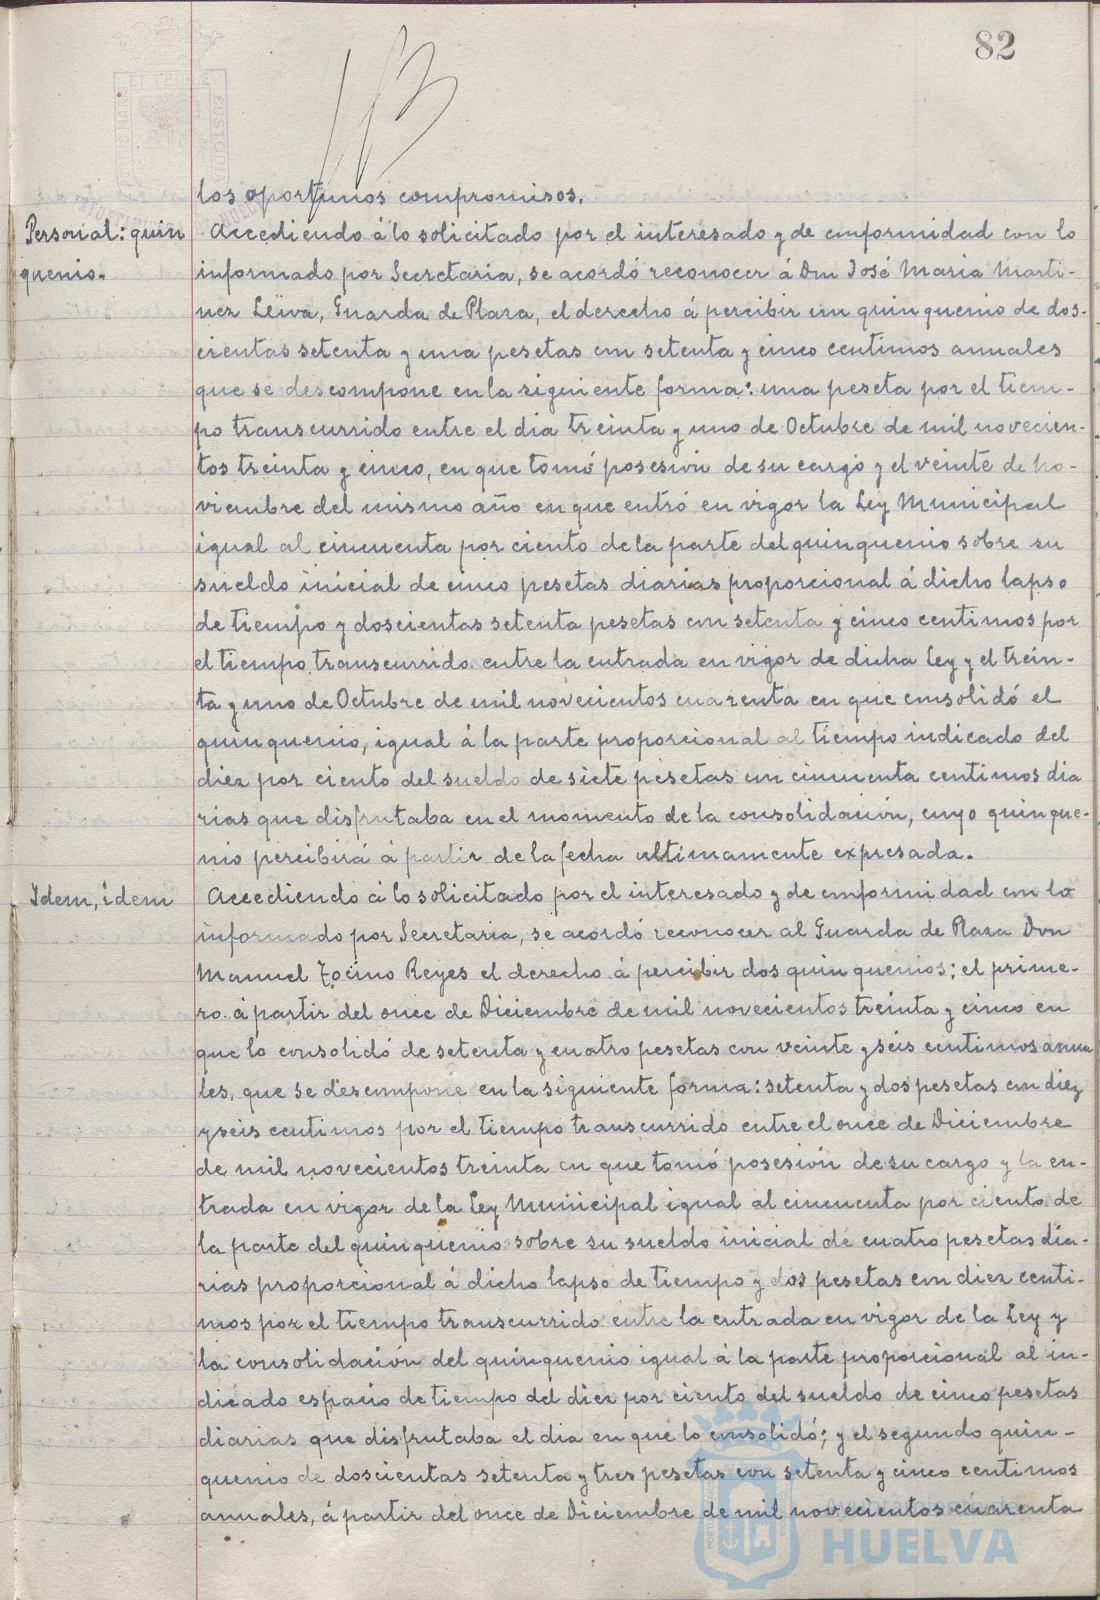 82
los oportunos compromisos.
Personal: quin
quenio.
Accediendo á lo solicitado por el interesado y de conformidad con lo
informado por Secretaria, se acordó reconocer á Don José Maria Marti-
nez Leiva, Guarda de Plaza, el derecho á percibir un quinquenio de dos-
cientas setenta y una pesetas con setenta y cinco centimos anuales
que se descompone en la siguiente forma: una peseta por el tiem-
po transcurrido entre el dia treinta y uno de Octubre de mil novecien-
tos treinta y cinco, en que tomó posesion de su cargo y el veinte de No-
viembre del mismo año en que entró en vigor la Ley Municipal
igual al cincuenta por ciento de la parte del quinquenio sobre su
sueldo inicial de cinco pesetas diarias proporcional á dicho lapso
de tiempo y doscientas setenta pesetas con setenta y cinco centimos por
el tiempo transcurrido entre la entrada en vigor de dicha Ley y el trein-
ta y uno de Octubre de mil novecientos cuarenta en que consolidó el
quinquenio, igual á la parte proporcional al tiempo indicado del
diez por ciento del sueldo de siete pesetas con cincuenta centimos dia
rias que disfrutaba en el momento de la consolidación, cuyo quinque-
nio percibirá á partir de la fecha ultimamente expresada.
Idem, idem
Accediendo á lo solicitado por el interesado y de conformidad con lo
informado por Secretaria, se acordó reconocer al Guarda de Plaza Don
Manuel Tocino Reyes el derecho á percibir dos quinquenios; el prime-
ro á partir del once de Diciembre de mil novecientos treinta y cinco en
que lo consolidó de setenta y cuatro pesetas con veinte y seis centimos anua
les, que se descompone en la siguiente forma: setenta y dos pesetas con diez
y seis centimos por el tiempo transcurrido entre el once de Diciembre
de mil novecientos treinta en que tomó posesión de su cargo y la en-
trada en vigor de la Ley Municipal igual al cincuenta por ciento de
la parte del quinquenio sobre su sueldo inicial de cuatro pesetas dia-
rias proporcional á dicho lapso de tiempo y dos pesetas con diez centi-
mos por el tiempo transcurrido entre la entrada en vigor de la Ley y
la consolidación del quinquenio igual á la parte proporcional al in-
dicado espacio de tiempo del diez por ciento del sueldo de cinco pesetas
diarias que disfrutaba el dia en que lo consolidó; y el segundo quin-
quenio de doscientas setenta y tres pesetas con setenta y cinco centimos
anuales, á partir del once de Diciembre de mil novecientos cuarenta
HUELVA